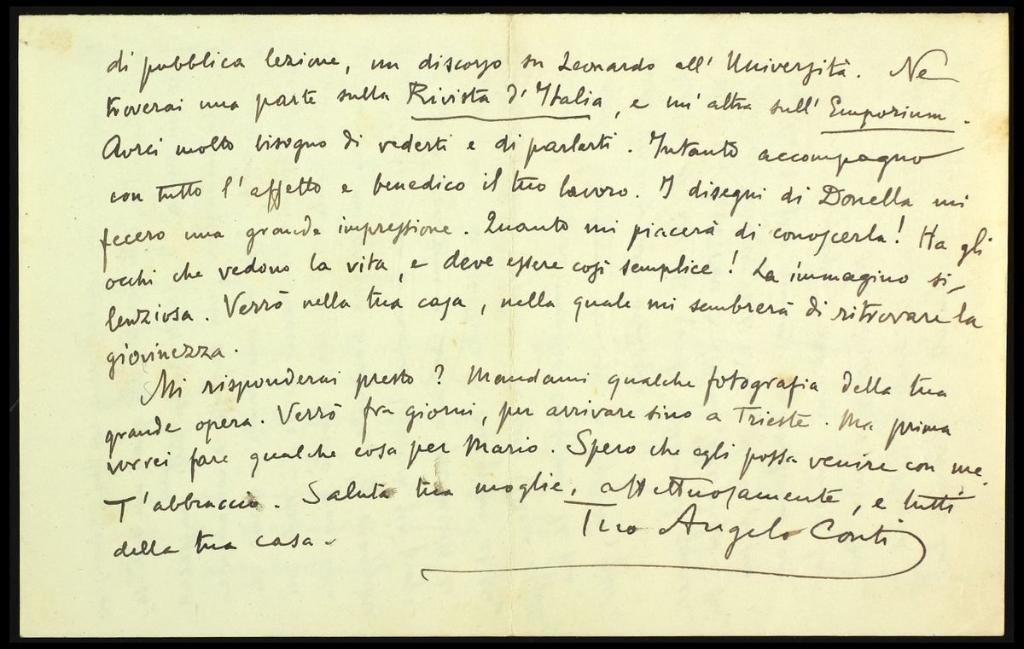 di pubblica lezione, un discorso su Leonardo all' Università. Ne
troverai una parte sulla Rivista d'Italia, e un' altra sull' Emporium.
Avrei molto bisogno di vederti e di parlarti. Intanto accompagno
con tutto l'affetto e benedico il tuo lavoro. I disegni di Donella mi
fecero una grande impressione. Quanto mi piacerà di conoscerla! Ha gli
occhi che vedono la vita, e deve essere così semplice! La immagino si-
lenziosa. Verrò nella tua casa, nella quale mi sembrerà di ritrovare la
giovinezza.
Mi risponderai presto? Mandami qualche fotografia della tua
grande opera. Verrò fra giorni, per arrivare sino a Trieste. Ma prima
vorrei fare qualche cosa per Mario. Spero che egli possa venire con me.
T'abbraccio. Saluta tua moglie, affettuosamente, e tutti
della tua casa.
Tuo Angelo Conti